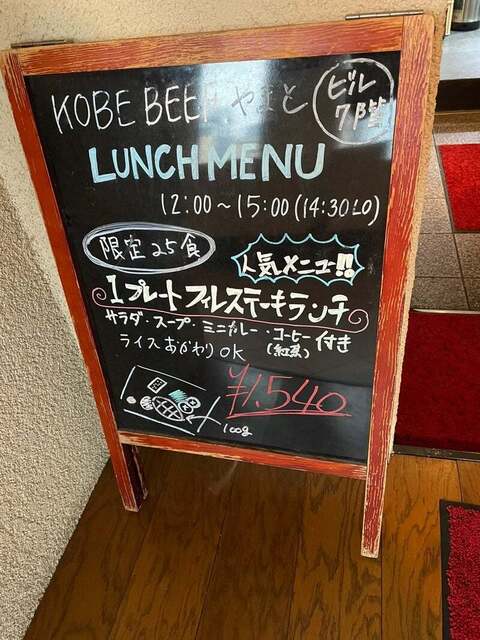 KOBE BEEF やまと
ビル
7階
LUNCH MENU
12:00～15:00(14:30LO)
限定25食
人気メニュー!!
1プレートフィレステーキランチ
サラダ・スープ・ミニカレー・コーヒー付き
(紅茶)
ライスおかわりOK
¥1,540
100g